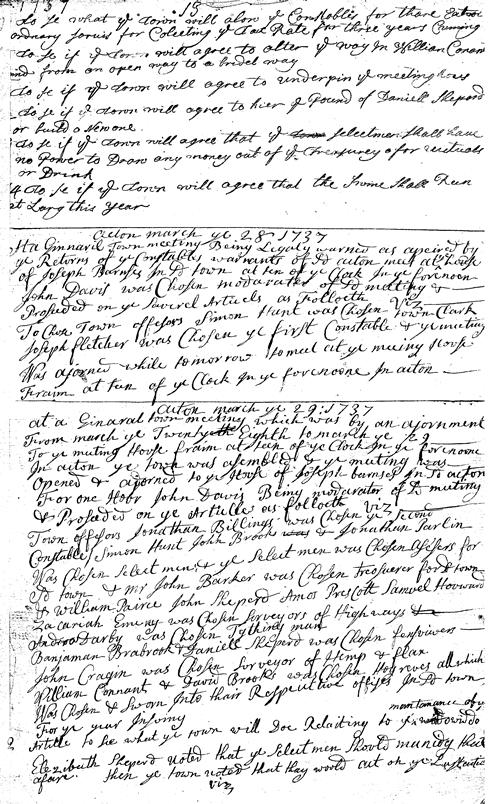 1737 15
To se what ye Town will alow ye Constables for thare Extror
ordnary sarvis for Colecting ye Tax Rate for three years Cuming
To se if ye Town will agree to alter ye way in William Conan
and from an open way to a bridel way
To se if ye Town will agree to underpin ye meeting hous
To se if ye Town will agree to hier ye Pound of Daniell Sheperd
or build a new one.
To se if ye Town will agree that ye Selectmen Shall have
no Power to Draw any money out of ye Treasurey for Victuals
or Drink
4 To se if ye Town will agree that the Swine Shall Run
at Larg this year
Acton march ye 28 1737
At a Ginnaril Town meeting Being Legaly warned as apeired by
ye Returns of ye Constables warrants of sd acton met at ye house
of Joseph Barnses In sd town at ten of ye Clock In ye forenoon
John Davis was Chosen moderator of sd meeting &
Proseded on ye Saverel Articels as Folloeth Viz
To Chose Town offesors Simon Hunt was Chosen Town Clark
Joseph Fletcher was Chosen ye first Constable & ye meeting
Was ajorned while tomorrow to meet at ye meeing House
Fraim at ten of ye Clock In ye forenoone In acton
Acton march ye 29: 1737
at a Ginaral town meeting which was by an ajornment
From march ye Twenty Eighth to march ye 29
To ye meeting House fraim at ten of ye Clock In ye forenone
In acton ye town was asembled & ye meeting was
Opened & ajorned to ye House of Joseph barnses In sd acton
For one Hobr John Davis Being moderator of sd meeting
& Proseded on ye Artille as folloeth Viz
Town offesors Jonathan Billings was Chosen ye Second
Constable Simon Hunt John Brook & Jonathan Parlin
Was Chosen Select men & ye Select men was Chosen Assesers for
sd town & mr John Barker was Chosen tresuerer for sd town
& William Pairce John Sheperd Amos Prescott Samuel Howward
Zacariah Emerey was Chosen Sorveyors of Highways &
Andrew Darby was Chosen Tythingman
Banjaman Brabrook & Daniell Sheperd was Chosen fensviwers
John Cragin was Chosen Surveyor of Himp & flax
William Connant & David Brooks was Chosen Hogreves all which
Was Chosen & Sworn Into thair Respeictive offises In sd town
For ye year Insuing
mantanance of
Artille to See what ye town will Doe Relaiting to ye widow
Elezibuth Sheperd voted that ye Select men Should manidg that
afaire. then ye town voted that thay would act on ye
Viz